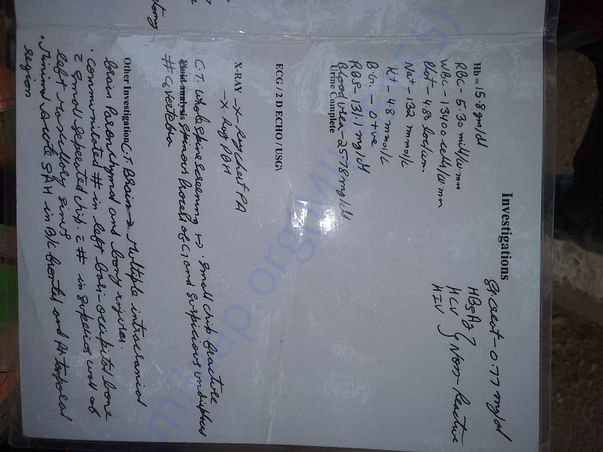 Investigations
Hb = 15.8 gm/dl
RBC - 5.30 mill/cu mm
WBC - 13400 cells/cu mm
Plat - 4.80 lac/cumm
Na+ - 132 mmol/L
K+ - 4.8 mmol/L
B.G. - O +ve
RBS - 131.1 mg/dl
Blood Urea - 25.78 mg/dl
Urine Complete
Sr creat - 0.77 mg/dl
HBsAg
HCV
HIV
Non-Reactive
ECG / 2 D ECHO / USG:
X-RAY → X-Ray Chest PA
→ X-Ray PBH
C.T. whole spine screening → small chip fracture
Fluid analysis spinous process of C7 and suspicious undisplaced
# C5 vertebra
Other Investigation: C.T. Brain → Multiple intracranial
brain Parenchymal and bony injuries.
communited # in left occipital bone
small depressed chip. # in superior wall of
left maxillary sinus
Minimal acute SAH in B/L frontal and temporal
region